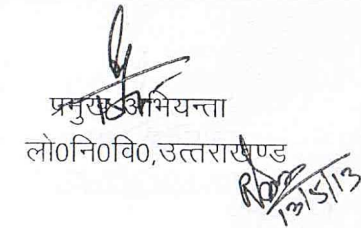 प्रमुख अभियन्ता
लो0नि0वि0,उत्तराखण्ड
13/5/13